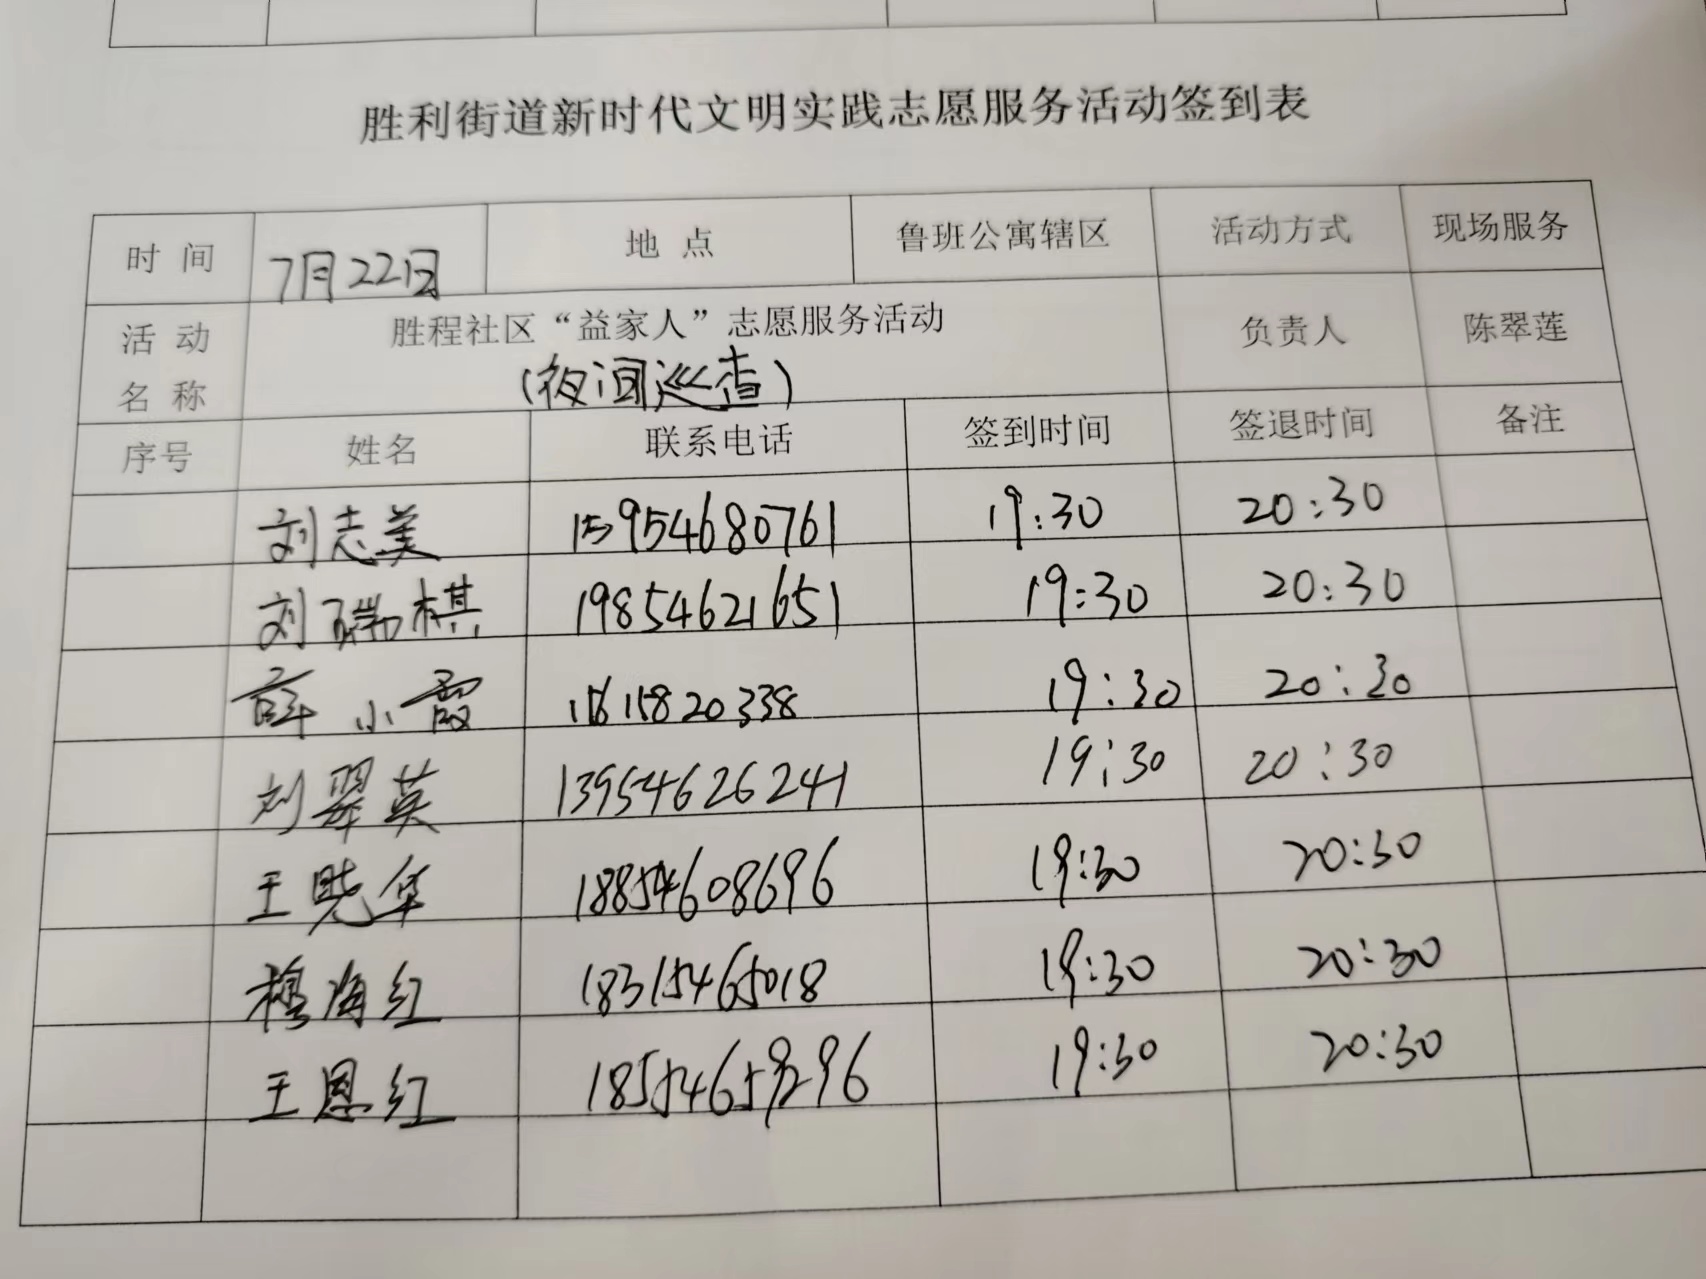 胜利街道新时代文明实践志愿服务活动签到表
时间 7月22日 地点 鲁班公寓辖区 活动方式 现场服务
活动名称 胜程社区“益家人”志愿服务活动 负责人 陈翠莲
(夜间巡查)
序号 姓名 联系电话 签到时间 签退时间 备注
刘志美 15954680761 19:30 20:30
刘瑞棋 19854621651 19:30 20:30
薛小霞 19:30 20:30
刘翠英 13954626241 19:30 20:30
王晓华 18854608696 19:30 20:30
穆海红 18315465018 19:30 20:30
王恩红 19:30 20:30